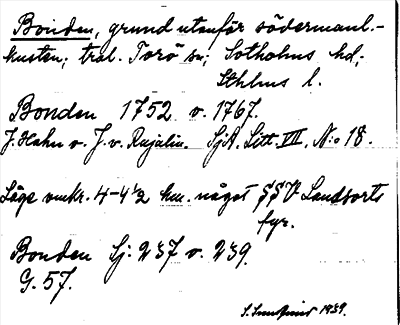 Bonden, grund utanför södermanl.-
kusten; tral. Torö sn; Sotholms hd;
Sthlms l.
Bonden 1752 o. 1767.
J. Hahn o. J. v. Rajalin. SjA. Litt. VII. N:o 18.
Läge omkr. 4-4½ km. något SSV Landsorts
fyr.
Bonden Sj: 237 o. 239.
G. 57.
S. Sundqvist 1939.